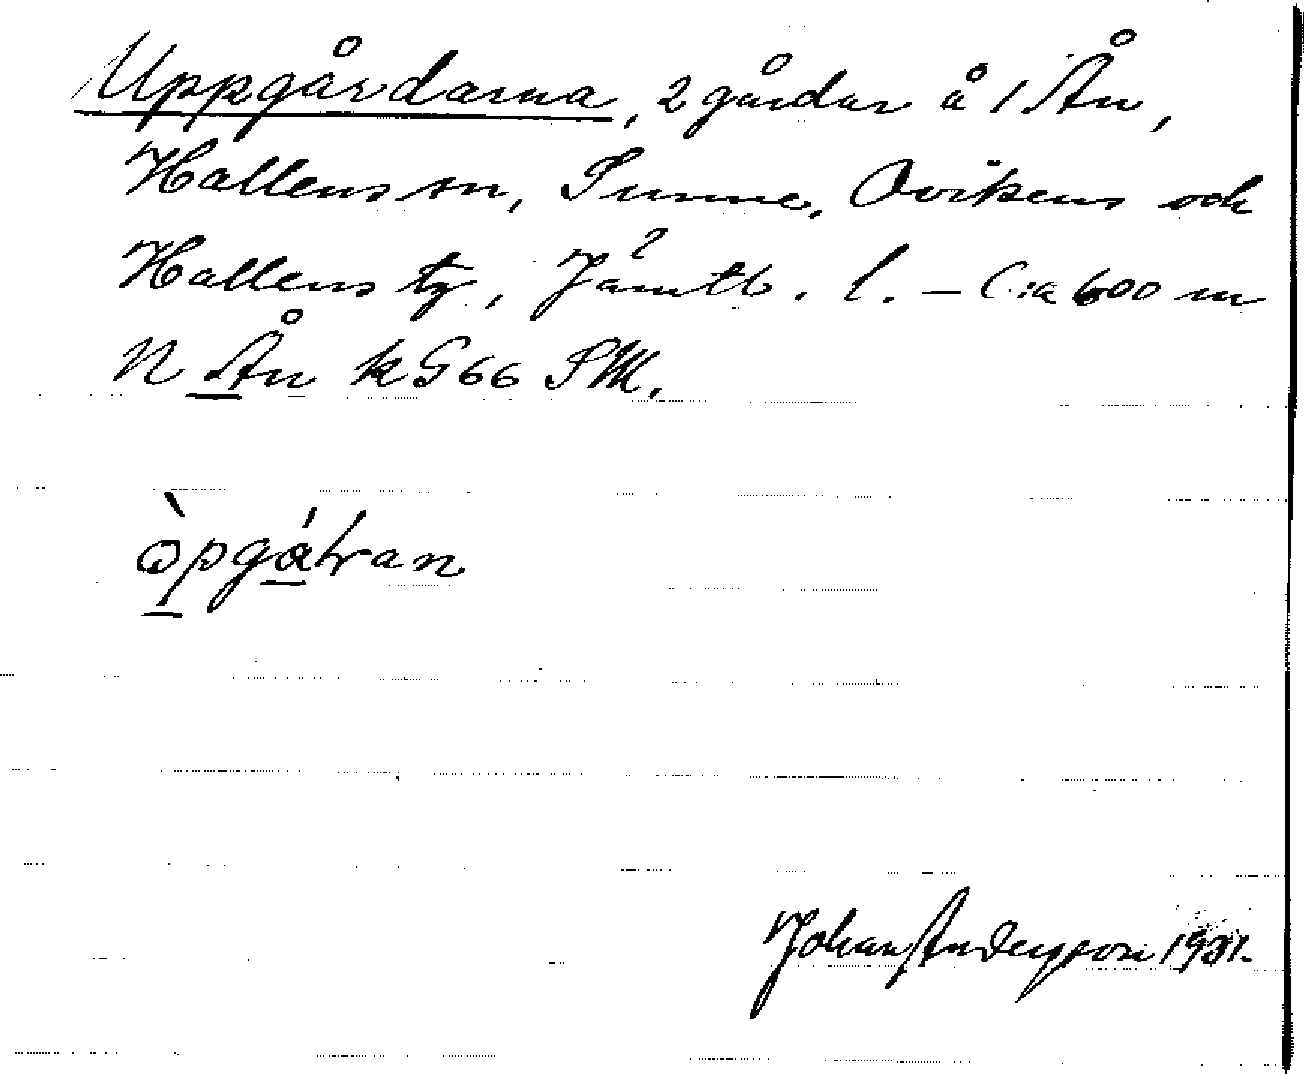 Uppgårdarna, 2 gårdar å 1 Ån,
Hallens sn, Sunne, Ovikens och
Hallens tg, Jämtl. l. – C:a 600 m
N Ån k G66 SM.
òpgátran
Johan Andersson 1931.